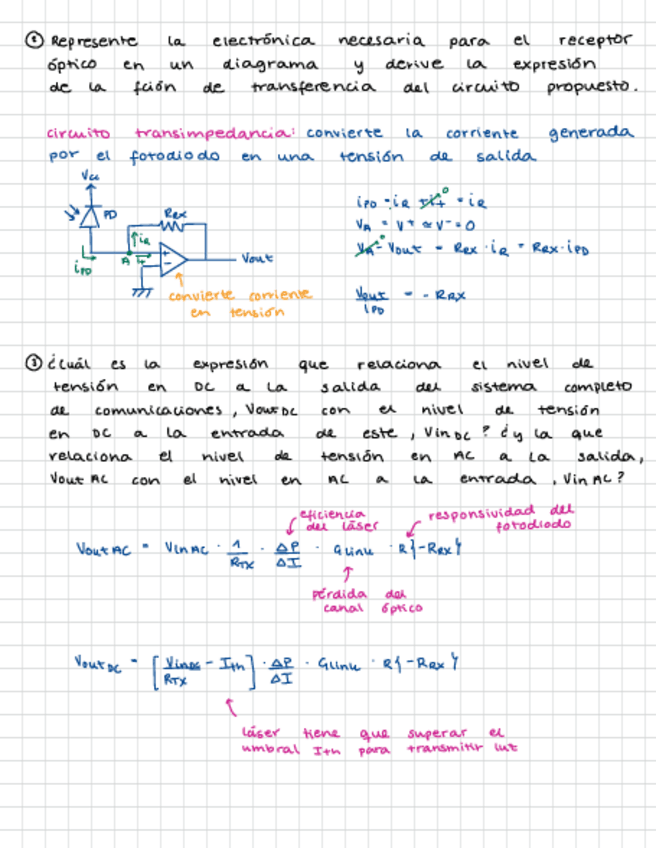 ② Represente la electrónica necesaria para el receptor
óptico en un diagrama y derive la expresión
de la fción de transferencia del circuito propuesto.
circuito transimpedancia: convierte la corriente generada
por el fotodiodo en una tensión de salida
Vcc
PD
Rex
iR
iPD
A
i+
+
-
Vout
convierte corriente
en tensión
iPD = iR + i+ = iR
0
VA = V+ ≈ V- = 0
VA - Vout = Rex · iR = Rex · iPD
Vout / iPD = - Rex
③ ¿Cuál es la expresión que relaciona el nivel de
tensión en DC a la salida del sistema completo
de comunicaciones, Vout DC con el nivel de tensión
en DC a la entrada de este, Vin DC? ¿y la que
relaciona el nivel de tensión en AC a la salida,
Vout AC con el nivel en AC a la entrada, Vin AC?
eficiencia
del láser
responsividad del
fotodiodo
Vout AC = Vin AC · 1/RTX · ΔP/ΔI · Glink · R{-Rex}
pérdida del
canal óptico
Vout DC = [Vin DC/RTX - Ith] · ΔP/ΔI · Glink · R{-Rex}
láser tiene que superar el
umbral Ith para transmitir luz